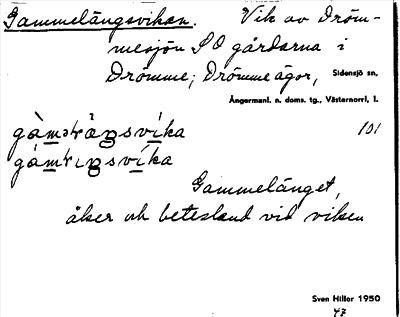 Gammelängsviken. Vik av Dröm-
mesjön SO gårdarna i
Drömme; Drömme ägor, Sidensjö sn,
Ångermanl. n. doms. tg., Västernorrl. l.
101
Gammelänget,
åker och betesland vid viken
Sven Hillor 1950
47